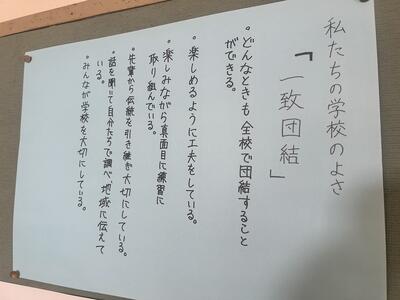 私たちの学校のよさ
「一致団結」
。どんなときも全校で団結すること
ができる。
。楽しめるように工夫をしている。
。楽しみながら真面目に練習に
取り組んでいる。
。先輩から伝統を引き継ぎ大切にしている。
。話を聞いて自分たちで調べ、地域に伝えて
いる。
。みんなが学校を大切にしている。